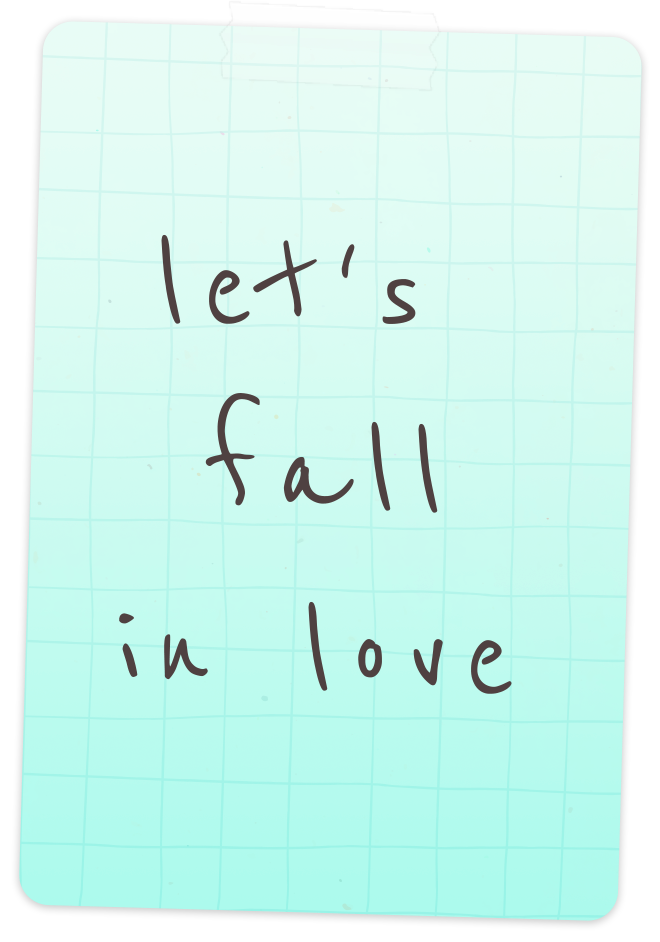 let's
fall
in love